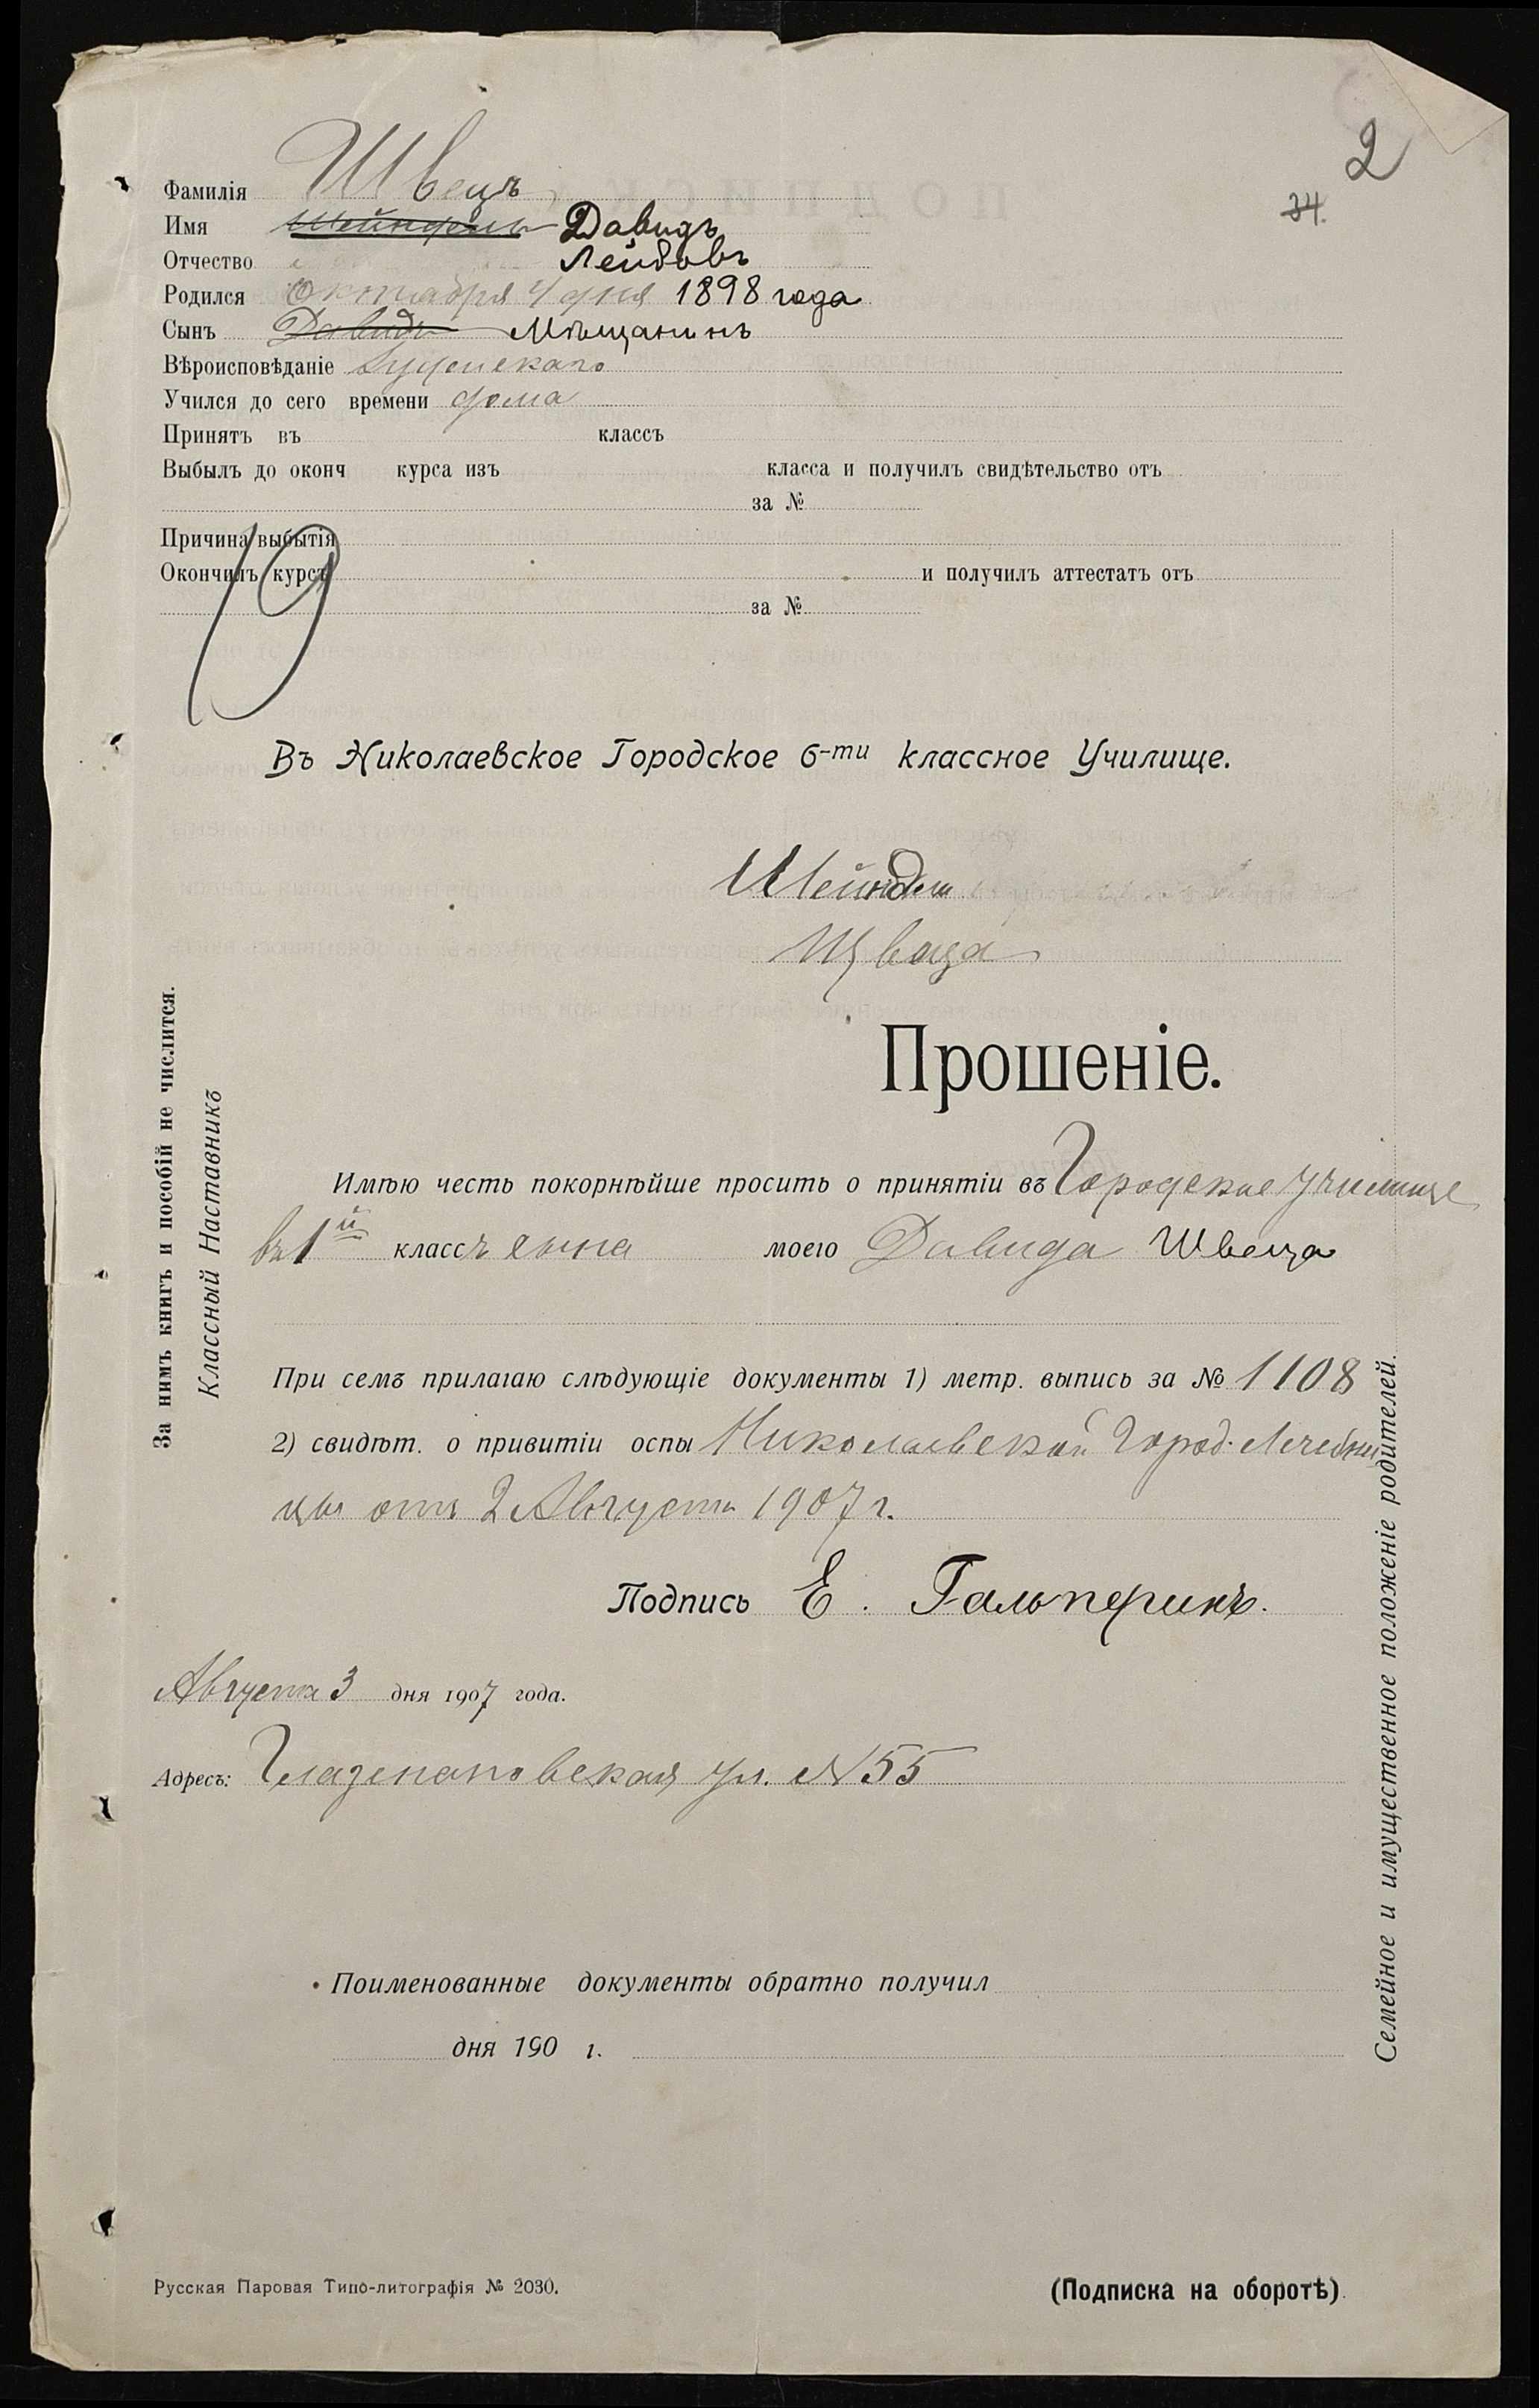 2
34.
Фамилія Швецъ
Имя Шейндель Давидъ
Отчество Лейбовъ
Родился Октября 4 дня 1898 года
Сынъ Давидъ Мѣщанинъ
Вѣроисповѣданіе Іудейскаго
Учился до сего времени дома
Принятъ въ классъ
Выбылъ до оконч курса изъ класса и получилъ свидѣтельство отъ
за №
Причина выбытія
Окончилъ курсъ и получилъ аттестатъ отъ
за №
19
Въ Николаевское Городское 6-ти классное Училище.
Шейндли
Швеца
Прошеніе.
Имѣю честь покорнѣйше просить о принятіи въ Городское училище
въ 1й классъ сына моего Давида Швеца
При семъ прилагаю слѣдующіе документы 1) метр. выпись за № 1108
2) свидѣт. о привитіи оспы Николаевской Город. Лечебни
цы отъ 2 Августа 1907 г.
Подпись Е. Гальперинъ.
Августа 3 дня 1907 года.
Адресъ: Глазенаповская ул. № 55
Поименованные документы обратно получил
дня 190 г.
Русская Паровая Типо-литографія № 2030.
(Подписка на оборотѣ)
За нимъ книгъ и пособій не числится.
Классный Наставникъ
Семейное и имущественное положеніе родителей.